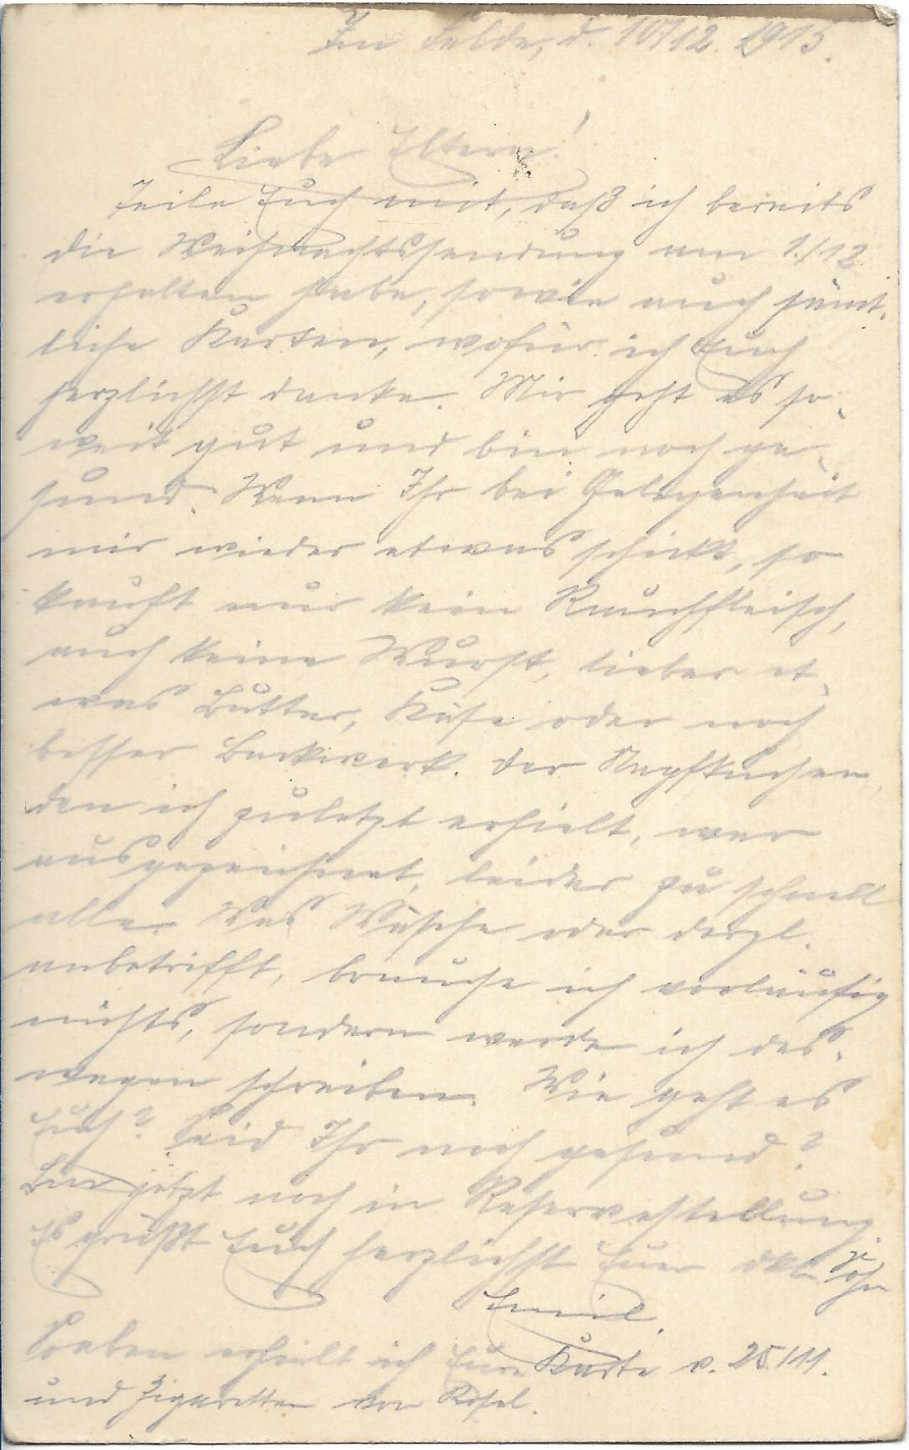 Im Felde, d. 10/12. 1915.
Liebe Eltern!
Teile Euch mit, daß ich bereits
die Weihnachtssendung am 1./12
erhalten habe, sowie auch sämt-
liche Karten, wofür ich Euch
herzlichst danke. Mir geht es so-
weit gut und bin noch ge-
sund. Wenn Ihr bei Gelegenheit
mir wieder etwas schickt, so
kauft nur kein Rauchfleisch,
auch keine Wurst, lieber et-
was Butter, Käse oder noch
besser Backwerk. Der Napfkuchen,
den ich zuletzt erhielt, war
ausgezeichnet, leider zu schnell
alle. Was Wäsche oder dergl.
anbetrifft, brauche ich vorläufig
nichts, sondern werde ich des-
wegen schreiben. Wie geht es
Euch? Seid Ihr noch gesund?
Bin jetzt noch in Reservestellung.
Es grüßt Euch herzlichst Euer dkb. Sohn
Emil.
Soeben erhielt ich Eure Karte v. 25./11.
und Zigaretten von Rösel.